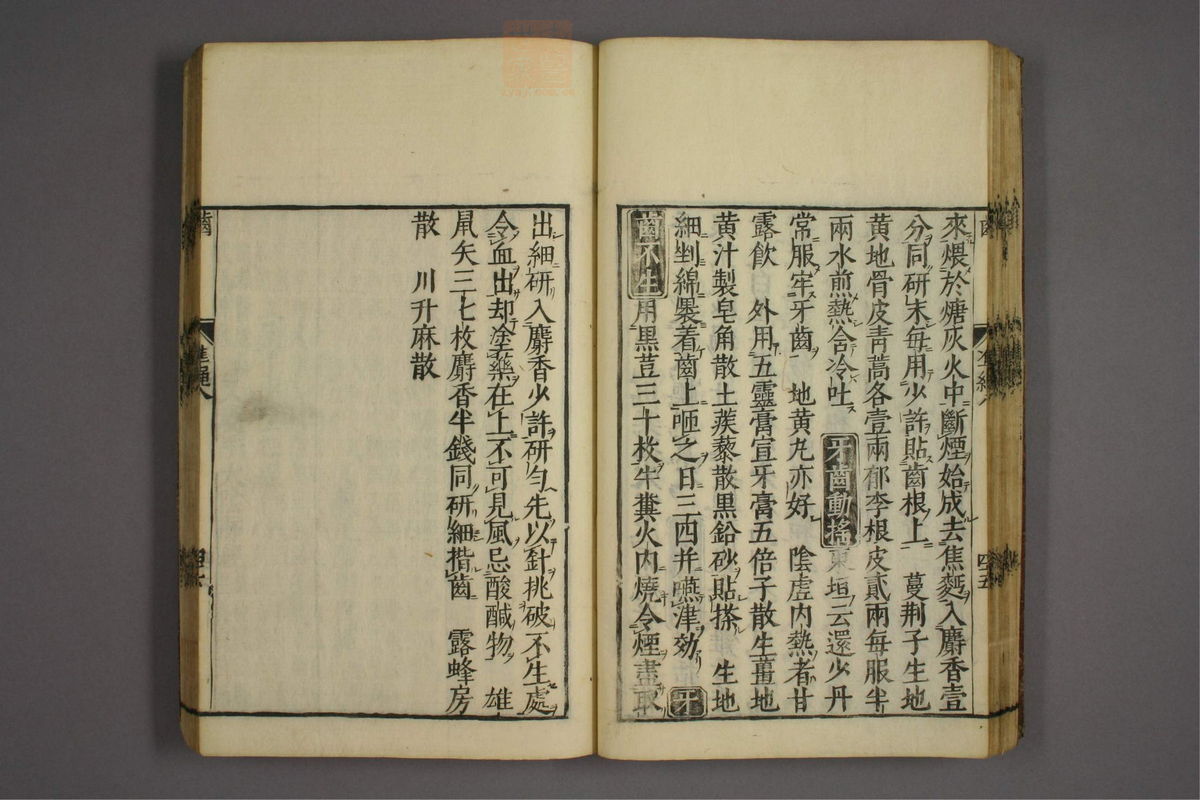 來煨於煻灰火中斷煙始成去焦麪入麝香壹
分同研末每用少許貼齒根上　蔓荆子生地
黄地骨皮青蒿各壹兩郁李根皮貳兩每服半
兩水煎熱含冷吐　牙齒動搖東垣云還少丹
常服牢牙齒　地黄丸亦好　陰虛内熱者甘
露飲　外用五靈膏宣牙膏五倍子散生薑地
黄汁製皂角散土蒺藜散黒鉛砂貼搽　生地
細剉綿裹着齒上咂之日三四并嚥津効　牙
齒不生用黒荳三十枚牛糞火内燒令煙盡取
四五
出細研入麝香少許研勻先以針挑破不生處
令血出却塗藥在上不可見風忌酸醎物　雄
鼠矢三七枚麝香半錢同研細揩齒　露蜂房
散　川升麻散
齒